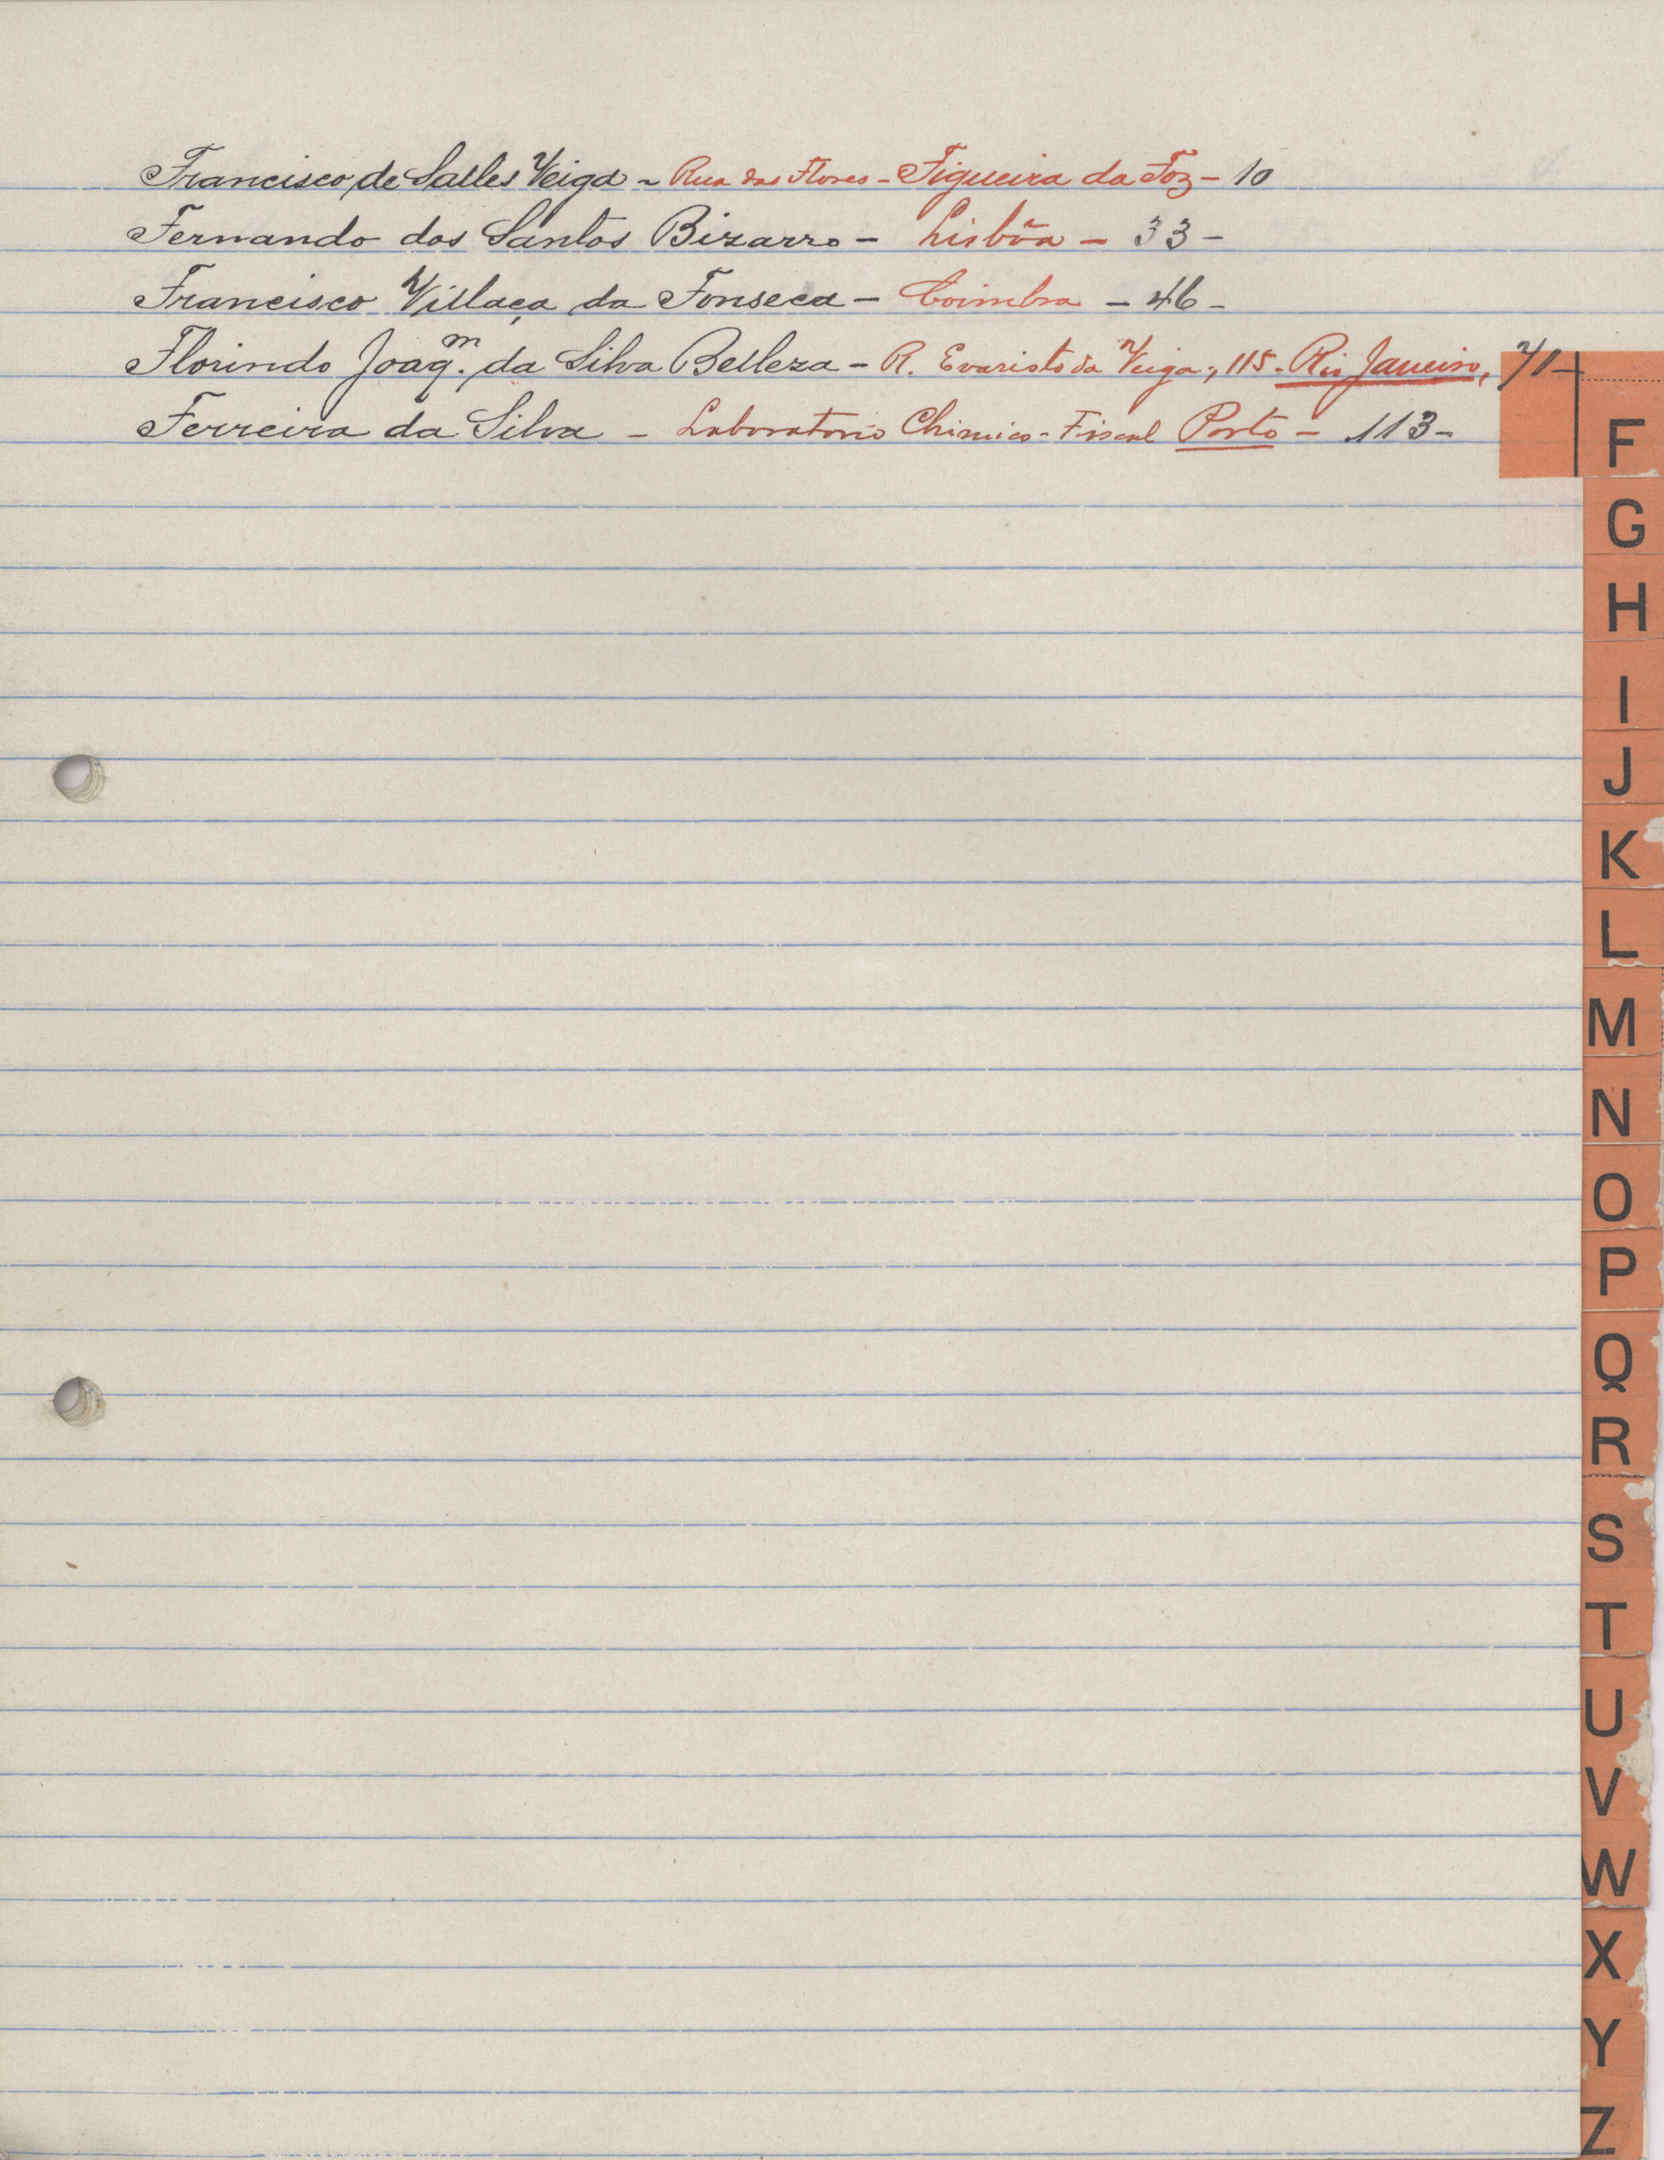 Francisco de Salles Veiga - Rua das Flores - Figueira da Foz - 10
Fernando dos Santos Bizarro - Lisbôa - 33 -
Francisco Villaça da Fonseca - Coimbra - 46 -
Florindo Joaq.m da Silva Belleza - R. Evaristo da Veiga, 115 - Rio Janeiro, 71 -
Ferreira da Silva - Laboratorio Chimico-Fiscal Porto - 113 -
F
G
H
I
J
K
L
M
N
O
P
Q
R
S
T
U
V
W
X
Y
Z